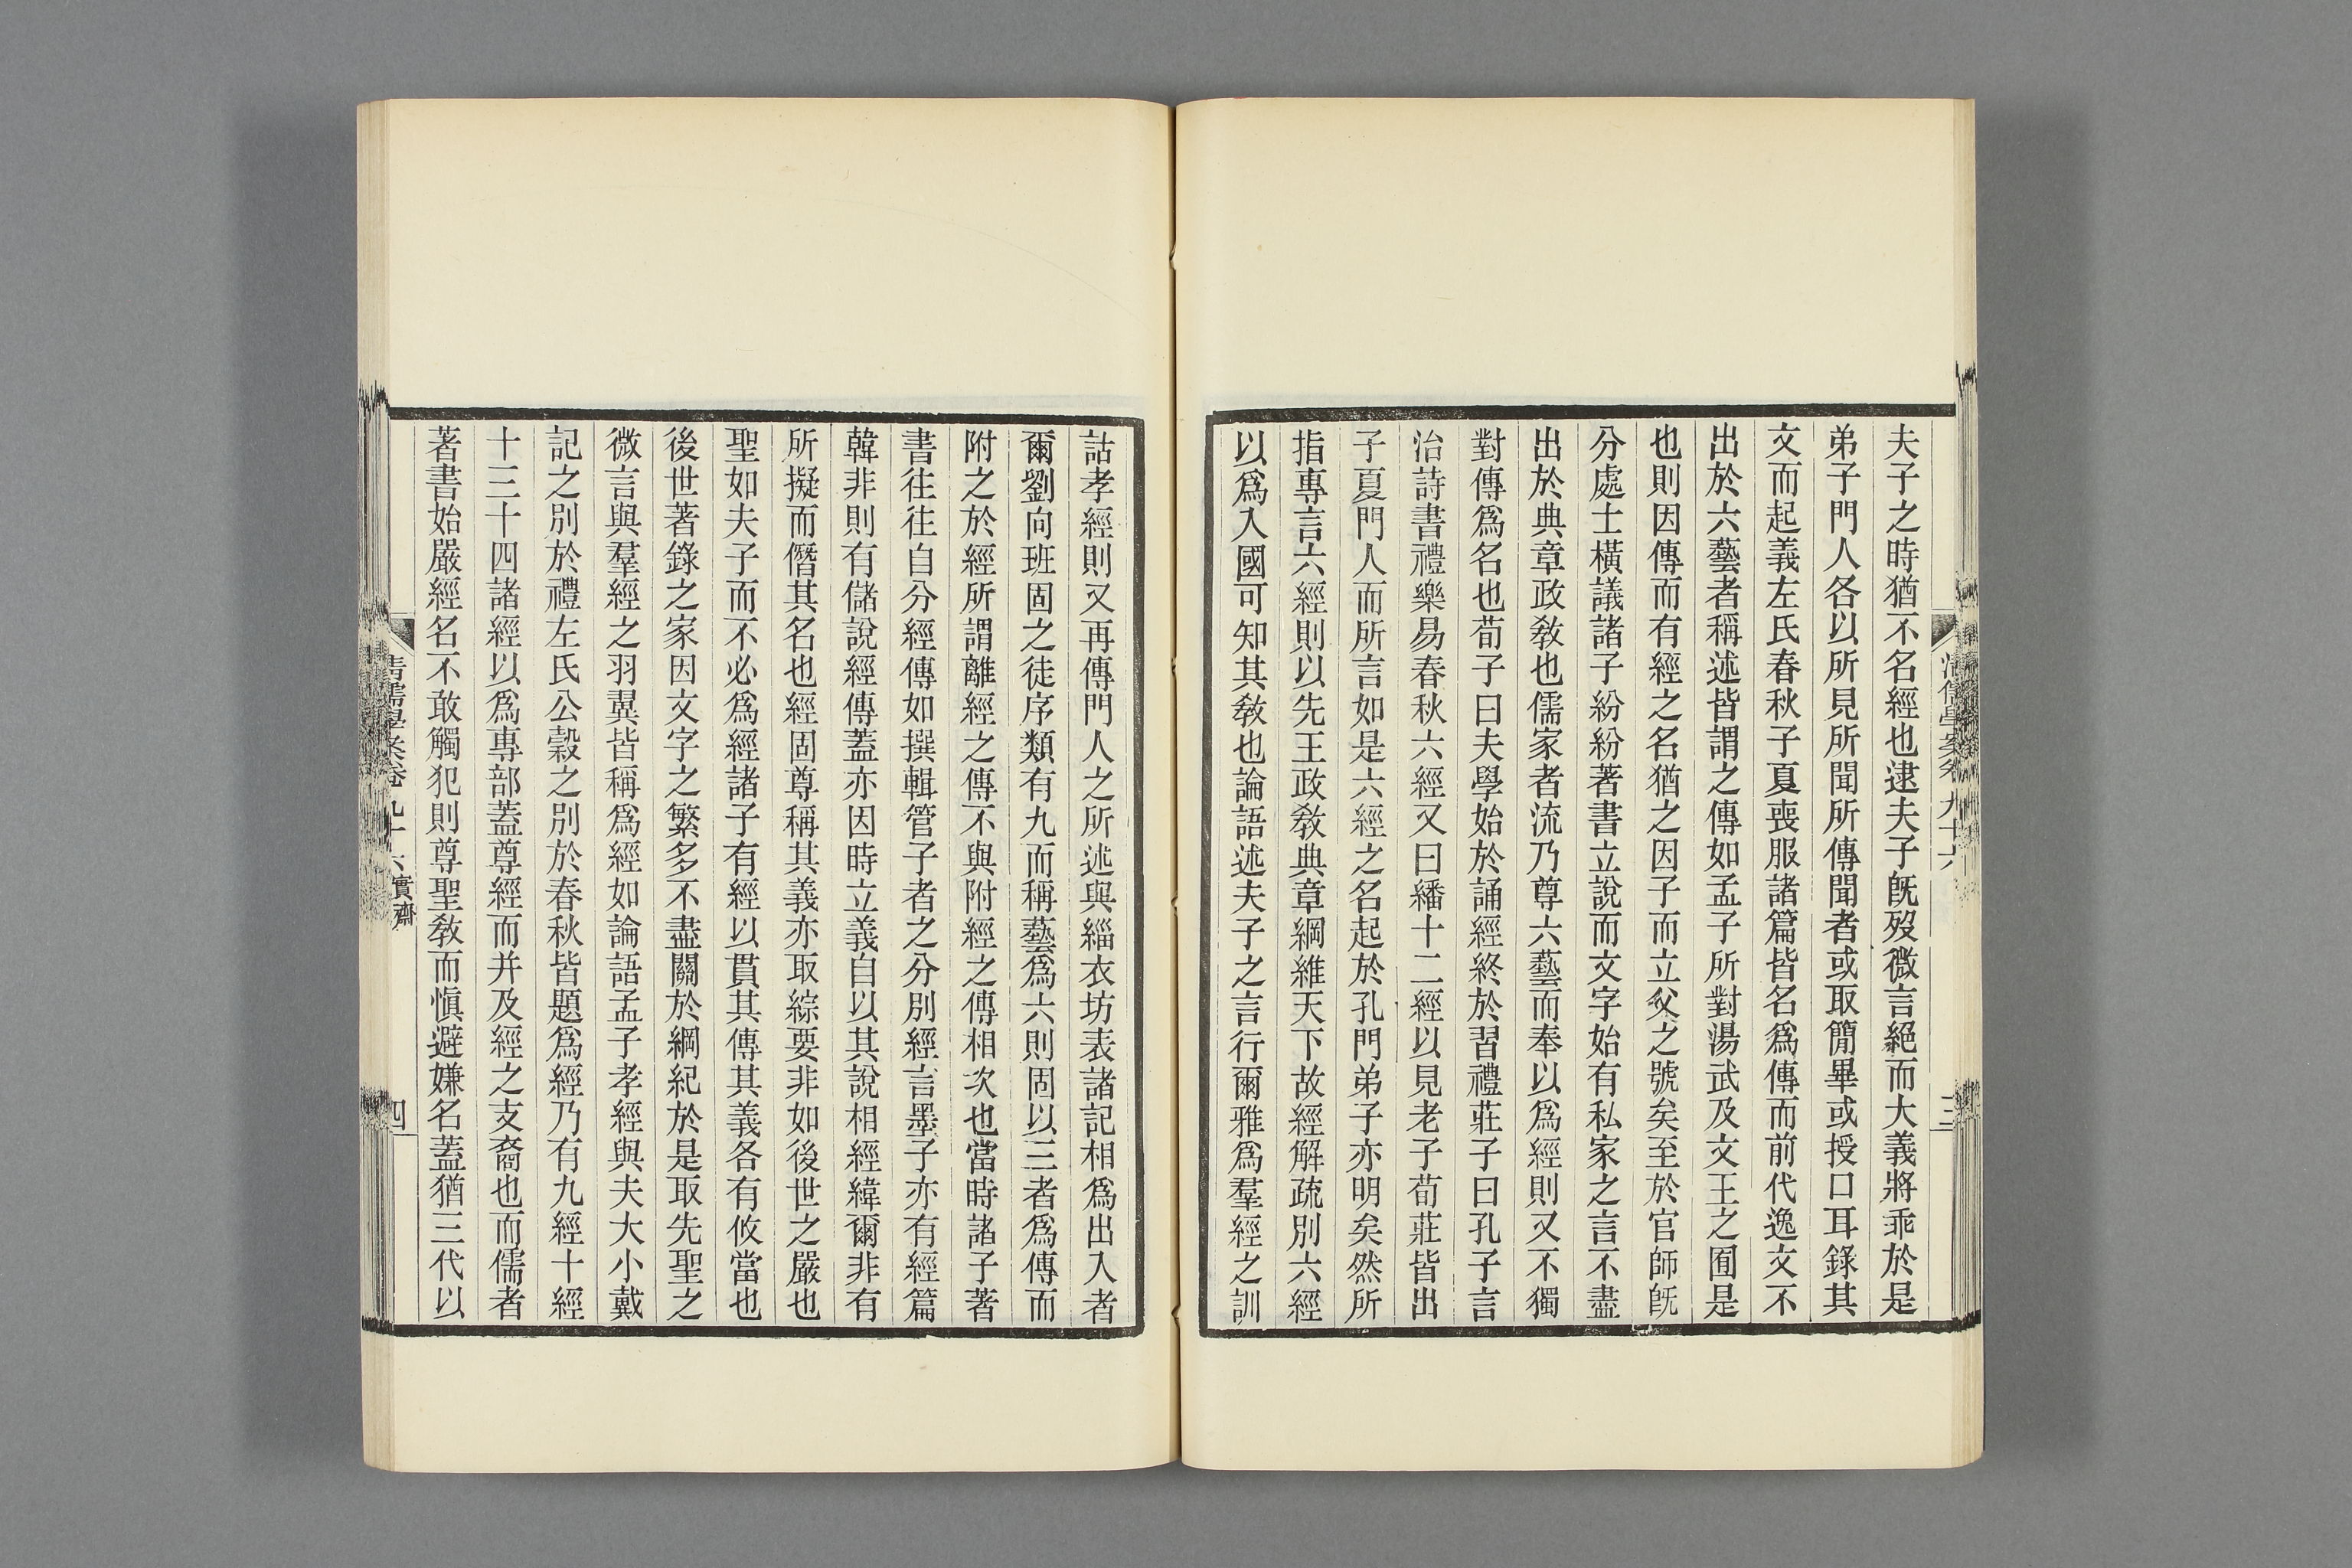 夫子之時猶不名經也逮夫子旣歿微言絕而大義將乖於是
弟子門人各以所見所聞所傳聞者或取簡畢或授口耳錄其
文而起義左氏春秋子夏喪服諸篇皆名爲傳而前代逸文不
出於六藝者稱述皆謂之傳如孟子所對湯武及文王之囿是
也則因傳而有經之名猶之因子而立父之號矣至於官師旣
分處士橫議諸子紛紛著書立說而文字始有私家之言不盡
出於典章政敎也儒家者流乃尊六藝而奉以爲經則又不獨
對傳爲名也荀子曰夫學始於誦經終於習禮莊子曰孔子言
治詩書禮樂易春秋六經又曰繙十二經以見老子荀莊皆出
子夏門人而所言如是六經之名起於孔門弟子亦明矣然所
指專言六經則以先王政敎典章綱維天下故經解疏別六經
以爲入國可知其敎也論語述夫子之言行爾雅爲羣經之訓
詁孝經則又再傳門人之所述與緇衣坊表諸記相爲出入者
爾劉向班固之徒序類有九而稱藝爲六則固以三者爲傳而
附之於經所謂離經之傳不與附經之傳相次也當時諸子著
書往往自分經傳如撰輯管子者之分別經言墨子亦有經篇
韓非則有儲說經傳蓋亦因時立義自以其說相經緯爾非有
所擬而僭其名也經固尊稱其義亦取綜要非如後世之嚴也
聖如夫子而不必爲經諸子有經以貫其傳其義各有攸當也
後世著錄之家因文字之繁多不盡關於綱紀於是取先聖之
微言與羣經之羽翼皆稱爲經如論語孟子孝經與夫大小戴
記之別於禮左氏公穀之別於春秋皆題爲經乃有九經十經
十三十四諸經以爲專部蓋尊經而并及經之支裔也而儒者
著書始嚴經名不敢觸犯則尊聖敎而愼避嫌名蓋猶三代以
清儒學案卷九十六 實齋
四